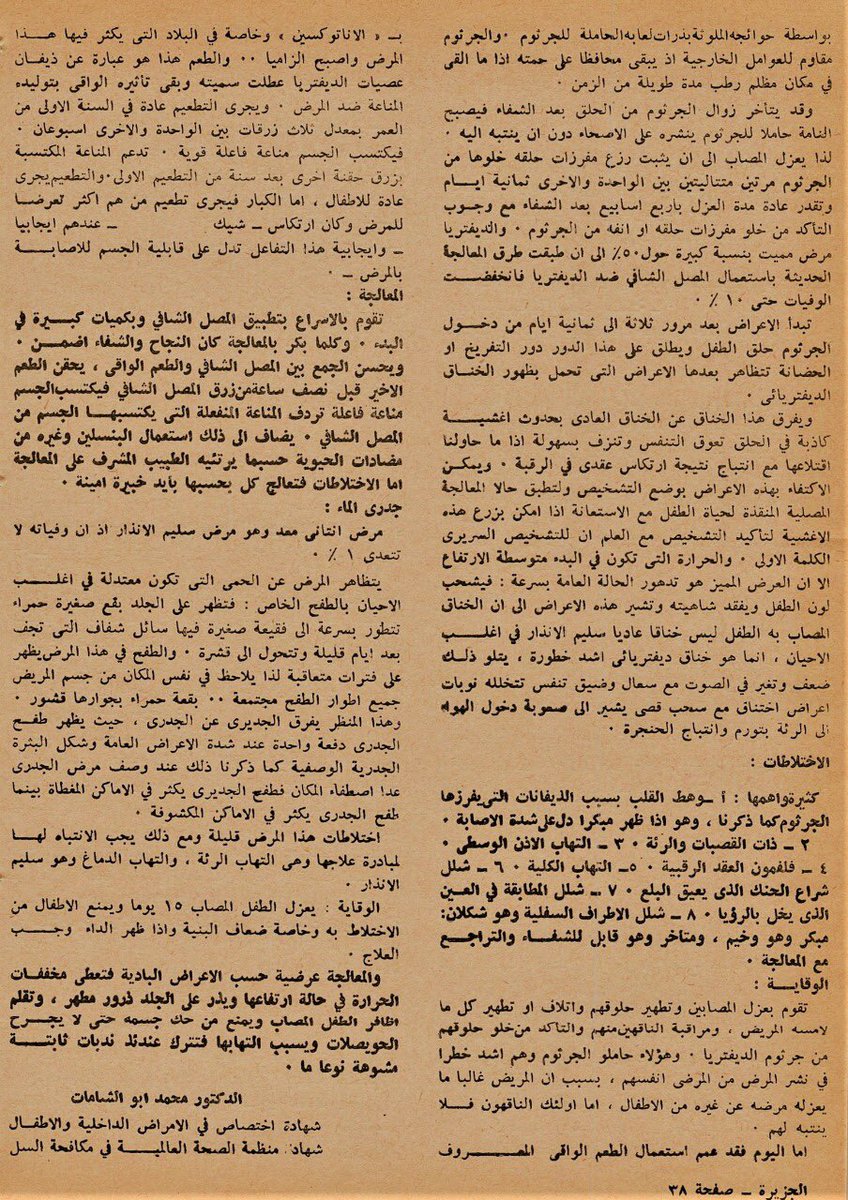 بواسطة حوائجه الملوثة بذرات لعابه الحاملة للجرثوم ٠ والجرثوم
مقاوم للعوامل الخارجية اذ يبقى محافظا على حمته اذا ما القى
في مكان مظلم رطب مدة طويلة من الزمن ٠
وقد يتأخر زوال الجرثوم من الحلق بعد الشفاء فيصبح
النامة حاملا للجرثوم ينشره على الاصحاء دون ان ينتبه اليه ٠
لذا يعزل المصاب الى ان يثبت رزع مفرزات حلقه خلوها من
الجرثوم مرتين متتاليتين بين الواحدة والاخرى ثمانية ايام
وتقدر عادة مدة العزل باربع اسابيع بعد الشفاء مع وجوب
التأكد من خلو مفرزات حلقه او انفه من الجرثوم ٠ والديفتريا
مرض مميت بنسبة كبيرة حول ٥٠٪ الى ان طبقت طرق المعالجة
الحديثة باستعمال المصل الشافي ضد الديفتريا فانخفضت
الوفيات حتى ١٠ ٪ ٠
تبدأ الاعراض بعد مرور ثلاثة الى ثمانية ايام من دخول
الجرثوم حلق الطفل ويطلق على هذا الدور دور التفريخ او
الحضانة تتظاهر بعدها الاعراض التى تحمل بظهور الخناق
الديفتريائى ٠
ويفرق هذا الخناق عن الخناق العادى بحدوث اغشية
كاذبة في الحلق تعوق التنفس وتنزف بسهولة اذا ما حاولنا
اقتلاعها مع انتباج نتيجة ارتكاس عقدى في الرقبة ٠ ويمكن
الاكتفاء بهذه الاعراض بوضع التشخيص ولتطبق حالا المعالجة
المصلية المنقذة لحياة الطفل مع الاستعانة اذا امكن بزرع هذه
الاغشية لتأكيد التشخيص مع العلم ان للتشخيص السريرى
الكلمة الاولى ٠ والحرارة التى تكون في البدء متوسطة الارتفاع
الا ان العرض المميز هو تدهور الحالة العامة بسرعة : فيشحب
لون الطفل ويفقد شاهيته وتشير هذه الاعراض الى ان الخناق
المصاب به الطفل ليس خناقا عاديا سليم الانذار في اغلب
الاحيان ، انما هو خناق ديفتريائى اشد خطورة ، يتلو ذلك
ضعف وتغير في الصوت مع سعال وضيق تنفس تتخلله نوبات
اعراض اختناق مع سحب قصى يشير الى صعوبة دخول الهواء
الى الرئة بتورم وانتباج الحنجرة ٠
الاختلاطات :
كثيرة واهمها : أ ــ وهط القلب بسبب الذيفانات التى يفرزها
الجرثوم كما ذكرنا ، وهو اذا ظهر مبكرا دل على شدة الاصابة ٠
٢ ــ ذات القصبات والرئة ٠ ٣ ــ التهاب الاذن الوسطى ٠
٤ ــ فلغمون العقد الرقبية ٠ ٥ــ التهاب الكلية ٠ ٦ ــ شلل
شراع الحنك الذى يعيق البلع ٠ ٧ ــ شلل المطابقة في العين
الذى يخل بالرؤيا ٠ ٨ ــ شلل الاطراف السفلية وهو شكلان:
مبكر وهو وخيم ، ومتاخر وهو قابل للشفاء والتراجع
مع المعالجة ٠
الوقاية :
تقوم بعزل المصابين وتطهير حلوقهم واتلاف او تطهير كل ما
لامسه المريض ، ومراقبة الناقهين منهم والتأكد من خلو حلوقهم
من جرثوم الديفتريا ٠ وهؤلاء حاملو الجرثوم وهم اشد خطرا
في نشر المرض من المرضى انفسهم ، بسبب ان المريض غالبا ما
يعزله مرضه عن غيره من الاطفال ، اما اولئك الناقهون فلا
ينتبه لهم ٠
اما اليوم فقد عمم استعمال الطعم الواقى المعروف
بـ « الاناتوكسين » وخاصة في البلاد التى يكثر فيها هذا
المرض واصبح الزاميا ٠٠ والطعم هذا هو عبارة عن ذيفان
عصيات الديفتريا عطلت سميته وبقى تأثيره الواقى بتوليده
المناعة ضد المرض ٠ ويجرى التطعيم عادة في السنة الاولى من
العمر بمعدل ثلاث زرقات بين الواحدة والاخرى اسبوعان ٠
فيكتسب الجسم مناعة فاعلة قوية ٠ تدعم المناعة المكتسبة
بزرق حقنة اخرى بعد سنة من التطعيم الاولى ٠ والتطعيم يجرى
عادة للاطفال ، اما الكبار فيجرى تطعيم من هم اكثر تعرضا
للمرض وكان ارتكاس ــ شيك ــ عندهم ايجابيا
ــ وايجابية هذا التفاعل تدل على قابلية الجسم للاصابة
بالمرض ــ ٠
المعالجة :
تقوم بالاسراع بتطبيق المصل الشافي وبكميات كبيرة في
البدء ٠ وكلما بكر بالمعالجة كان النجاح والشفاء اضمن ٠
ويحسن الجمع بين المصل الشافي والطعم الواقى ، يحقن الطعم
الاخير قبل نصف ساعة من زرق المصل الشافي فيكتسب الجسم
مناعة فاعلة تردف المناعة المنفعلة التى يكتسبها الجسم من
المصل الشافي ٠ يضاف الى ذلك استعمال البنسلين وغيره من
مضادات الحيوية حسبما يرتئيه الطبيب المشرف على المعالجة
اما الاختلاطات فتعالج كل بحسبها بأيد خبيرة امينة ٠
جدرى الماء :
مرض انتانى معد وهو مرض سليم الانذار اذ ان وفياته لا
تتعدى ١ ٪ ٠
يتظاهر المرض عن الحمى التى تكون معتدلة في اغلب
الاحيان بالطفح الخاص : فتظهر على الجلد بقع صغيرة حمراء
تتطور بسرعة الى فقيعة صغيرة فيها سائل شفاف التى تجف
بعد ايام قليلة وتتحول الى قشرة ٠ والطفح في هذا المرض يظهر
على فترات متعاقبة لذا يلاحظ في نفس المكان من جسم المريض
جميع اطوار الطفح مجتمعة ٠٠ بقعة حمراء بجوارها قشور ٠
وهذا المنظر يفرق الجديرى عن الجدرى ، حيث يظهر طفح
الجدرى دفعة واحدة عند شدة الاعراض العامة وشكل البثرة
الجدرية الوصفية كما ذكرنا ذلك عند وصف مرض الجدرى
عدا اصطفاء المكان فطفح الجديرى يكثر في الاماكن المغطاة بينما
طفح الجدرى يكثر في الاماكن المكشوفة ٠
اختلاطات هذا المرض قليلة ومع ذلك يجب الانتباه لها
لمبادرة علاجها وهى التهاب الرئة ، والتهاب الدماغ وهو سليم
الانذار ٠
الوقاية : يعزل الطفل المصاب ١٥ يوما ويمنع الاطفال من
الاختلاط به وخاصة ضعاف البنية واذا ظهر الداء وجب
العلاج ٠
والمعالجة عرضية حسب الاعراض البادية فتعطى مخففات
الحرارة في حالة ارتفاعها ويذر على الجلد ذرور مطهر ، وتقلم
اظافر الطفل المصاب ويمنع من حك جسمه حتى لا يجرح
الحويصلات ويسبب التهابها فتترك عندئذ ندبات ثابتة
مشوهة نوعا ما ٠
الدكتور محمد ابو الشامات
شهادة اختصاص في الامراض الداخلية والاطفال
شهادة منظمة الصحة العالمية في مكافحة السل
الجزيرة ــ صفحة ٣٨